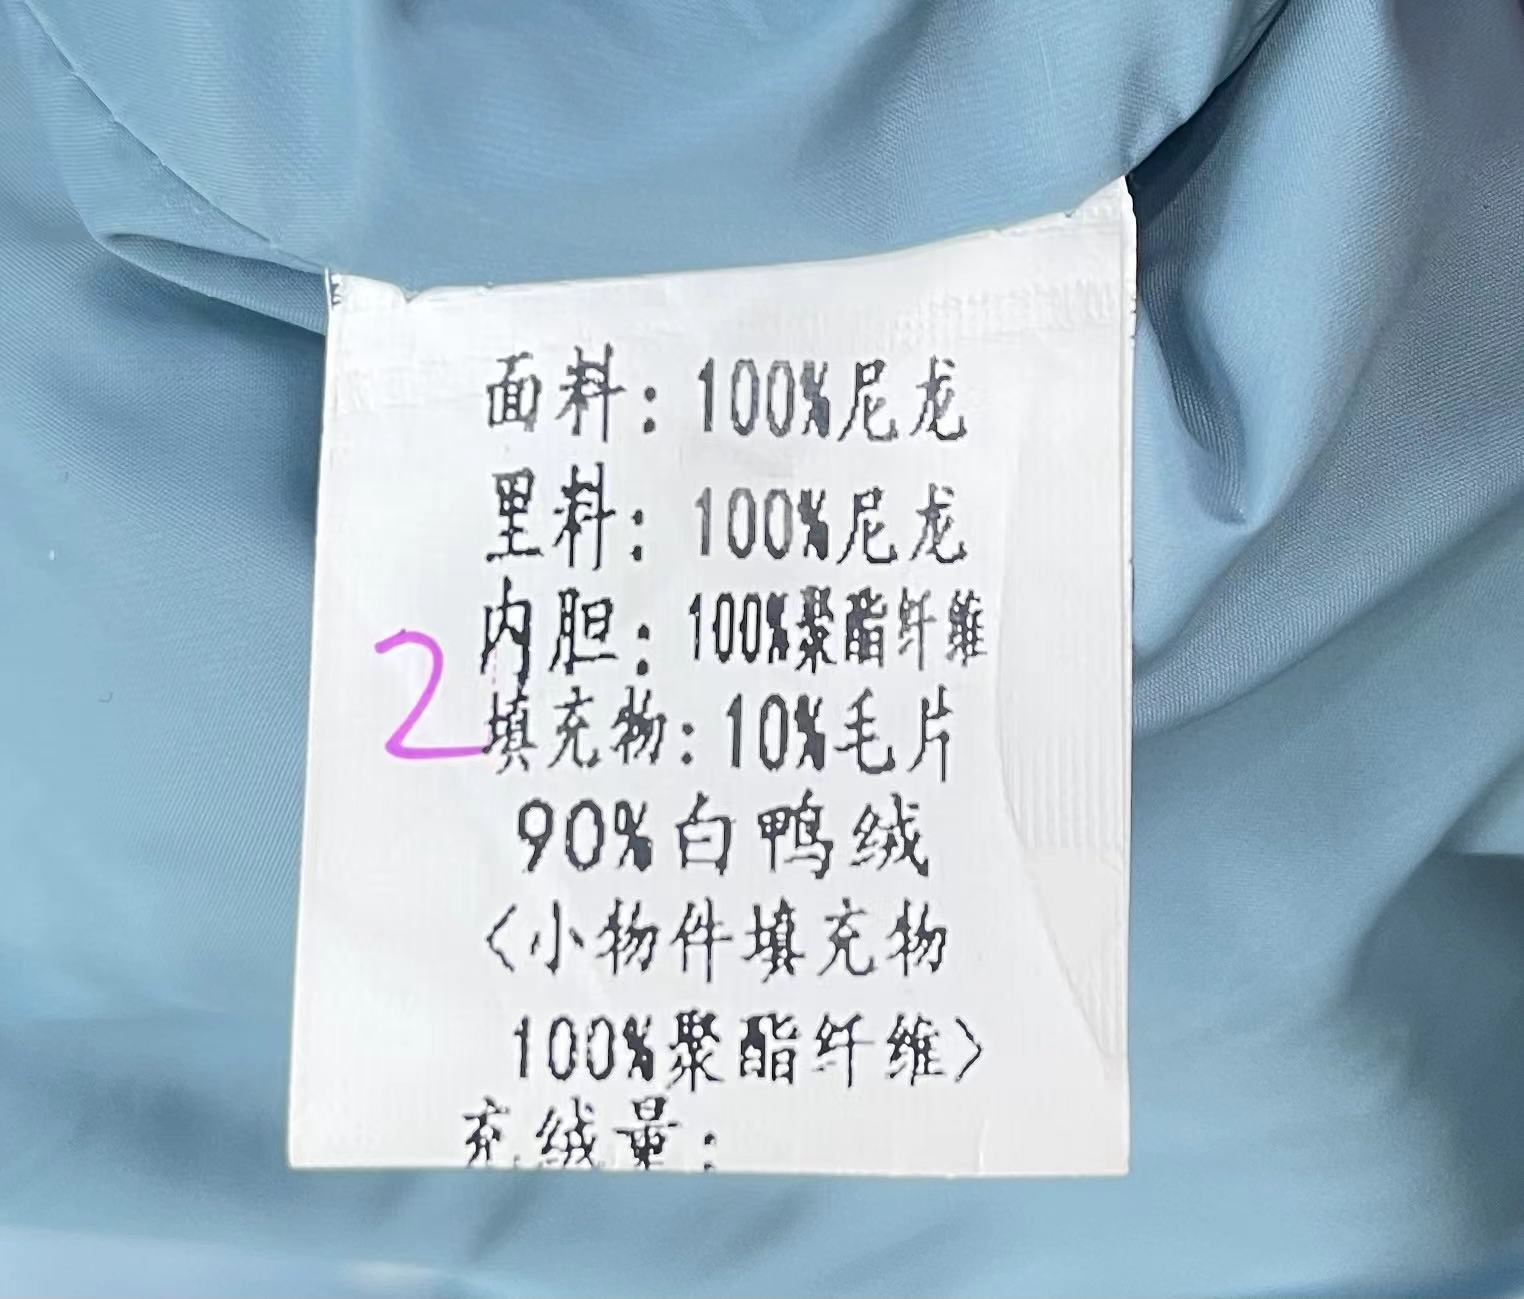 面料：100%尼龙
里料：100%尼龙
内胆：100%聚酯纤维
2
填充物：10%毛片
90%白鸭绒
<小物件填充物
100%聚酯纤维>
充绒量：